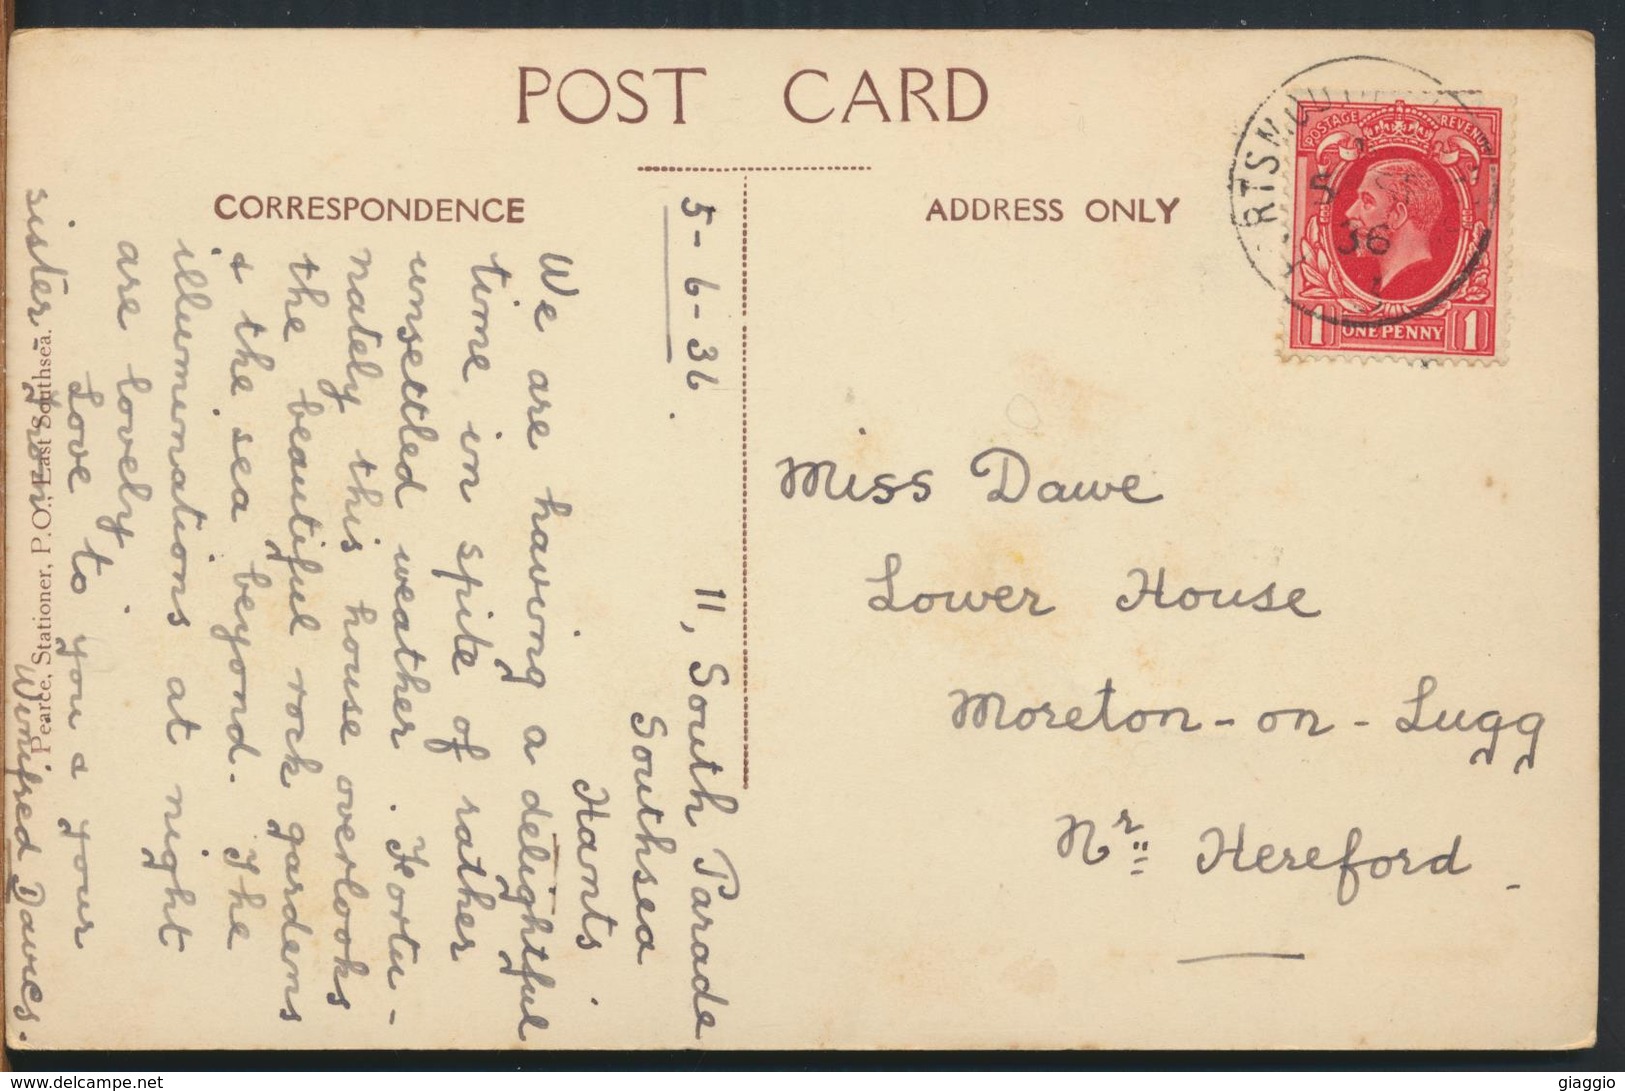 POST CARD
CORRESPONDENCE
ADDRESS ONLY
POSTAGE REVENUE
1 ONE PENNY 1
RTSMOU
5 SE
36
11, South Parade
Southsea
Hants.
5-6-36.
We are having a delightful
time in spite of rather
unsettled weather. Fortu-
nately this house overlooks
the beautiful rock gardens
& the sea beyond. The
illuminations at night
are lovely.
Love to you & your
sister - from
Winifred Davies.
Pearce, Stationer, P.O., East Southsea.
Miss Dawe
Lower House
Moreton-on-Lugg
Nr Hereford
delcampe.net
giaggio